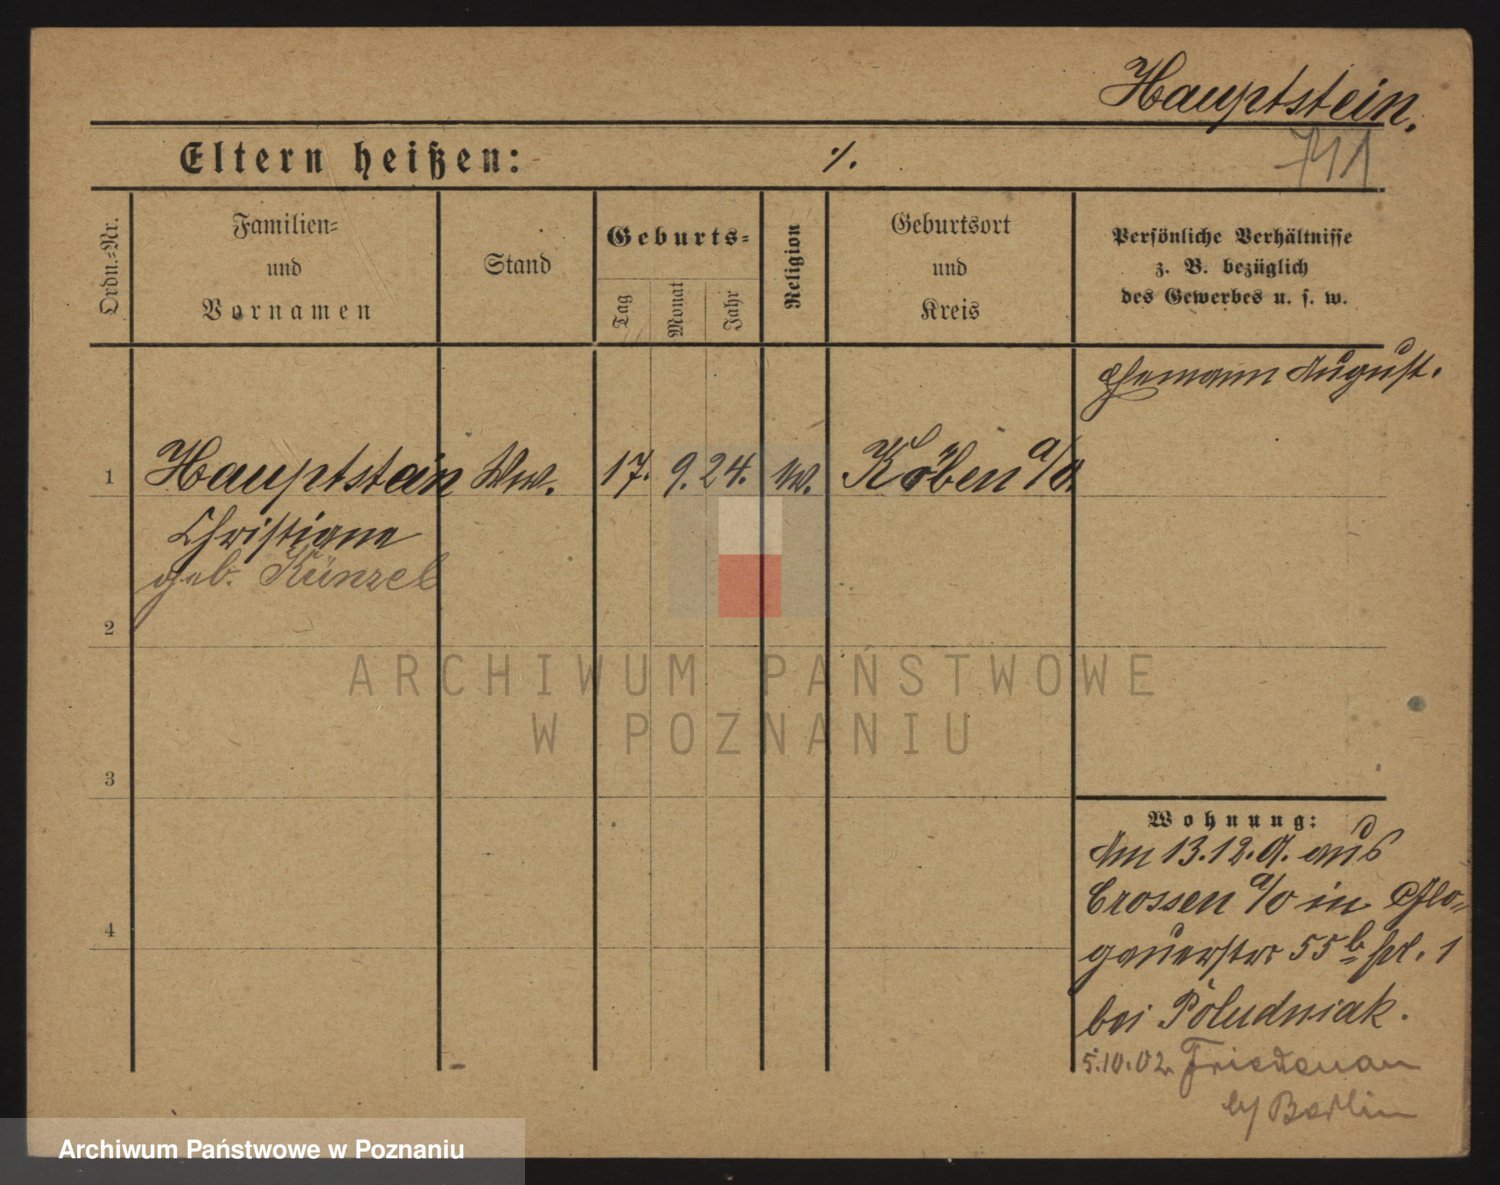 Hauptstein.
741
Eltern heißen: ./.
Ordn.=Nr.
Familien=
und
Vornamen
Stand
Geburts=
Tag
Monat
Jahr
Religion
Geburtsort
und
Kreis
Persönliche Verhältnisse
z. B. bezüglich
des Gewerbes u. s. w.
Ehemann August.
1 Hauptstein Ww. 17. 9. 24. ev. Köben a/O.
Christiane
geb. Künzel
2
3
4
Wohnung:
Am 13.12.01. aus
Crossen a/O in Glo-
gauerstr 55b pt. 1
bei Poludniak.
5.10.02. Friedenau
b/ Berlin
ARCHIWUM PAŃSTWOWE
W POZNANIU
Archiwum Państwowe w Poznaniu